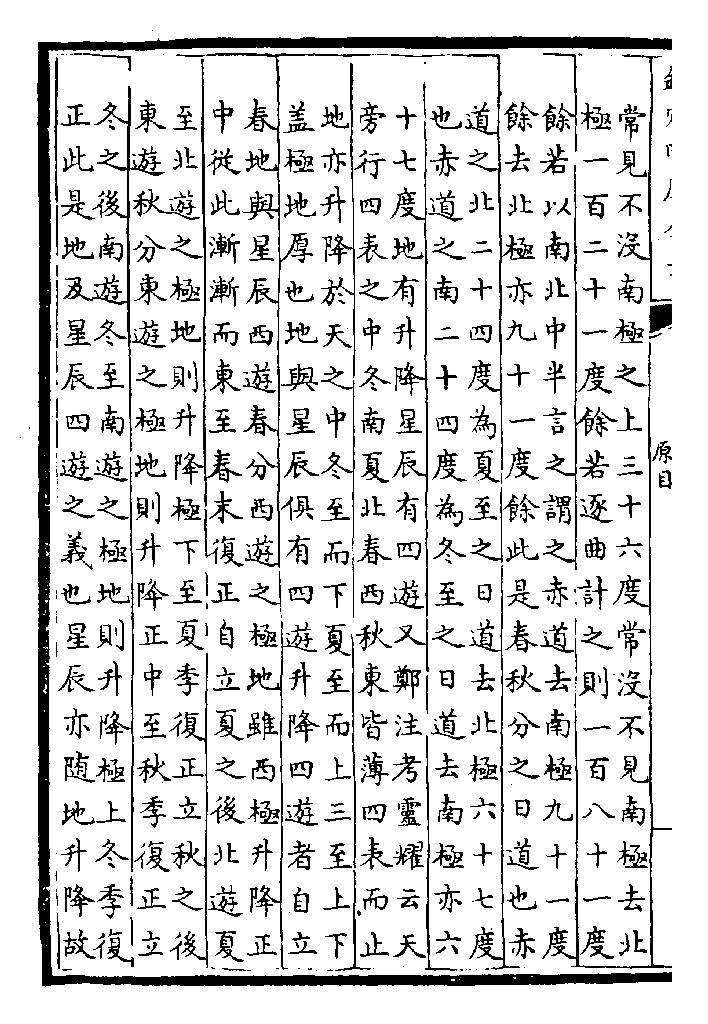 原目
常見不沒南極之上三十六度常沒不見南極去北
極一百二十一度餘若逐曲計之則一百八十一度
餘若以南北中半言之謂之赤道去南極九十一度
餘去北極亦九十一度餘此是春秋分之日道也赤
道之北二十四度為夏至之日道去北極六十七度
也赤道之南二十四度為冬至之日道去南極亦六
十七度地有升降星辰有四遊又鄭注考靈耀云天
旁行四表之中冬南夏北春西秋東皆薄四表而止
地亦升降於天之中冬至而下夏至而上三至上下
盖極地厚也地與星辰俱有四遊升降四遊者自立
春地與星辰西遊春分西遊之極地雖西極升降正
中從此漸漸而東至春末復正自立夏之後北遊夏
至北遊之極地則升降極下至夏季復正立秋之後
東遊秋分東遊之極地則升降正中至秋季復正立
冬之後南遊冬至南遊之極地則升降極上冬季復
正此是地及星辰四遊之義也星辰亦随地升降故